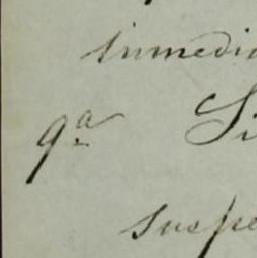 inmedia
9ª Si
suspe